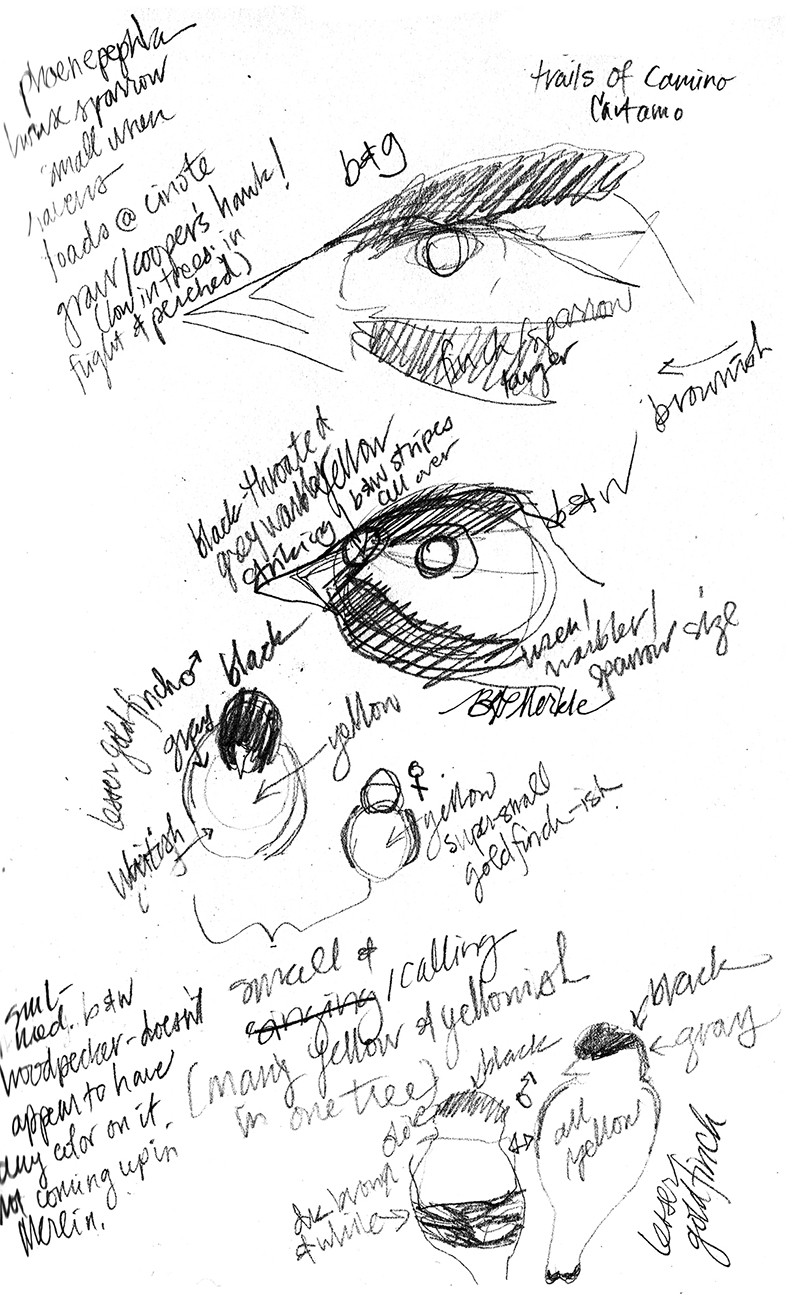 trails of Camino
Cartamo
phoenepepla
house sparrow
small wren
ravens
loads @ cinote
graw/cooper's hawk!
(low in trees. in
flight & perched)
b&g
finch/sparrow
larger
brownish
black-throated
grey warbler
striking
yellow
b&w stripes
all over
b&w
wren/
warbler/
sparrow size
BG Merkle
lesser goldfinch ♂
black
grays
yellow
whitish
♀
yellow
super small
goldfinch-ish
small &
singing/calling
(many yellow & yellowish
in one tree)
sml-
med. b&w
woodpecker-doesn't
appear to have
any color on it
not coming up in
Merlin.
black
♂
dk brown
& white
black
gray
all
yellow
lesser
goldfinch